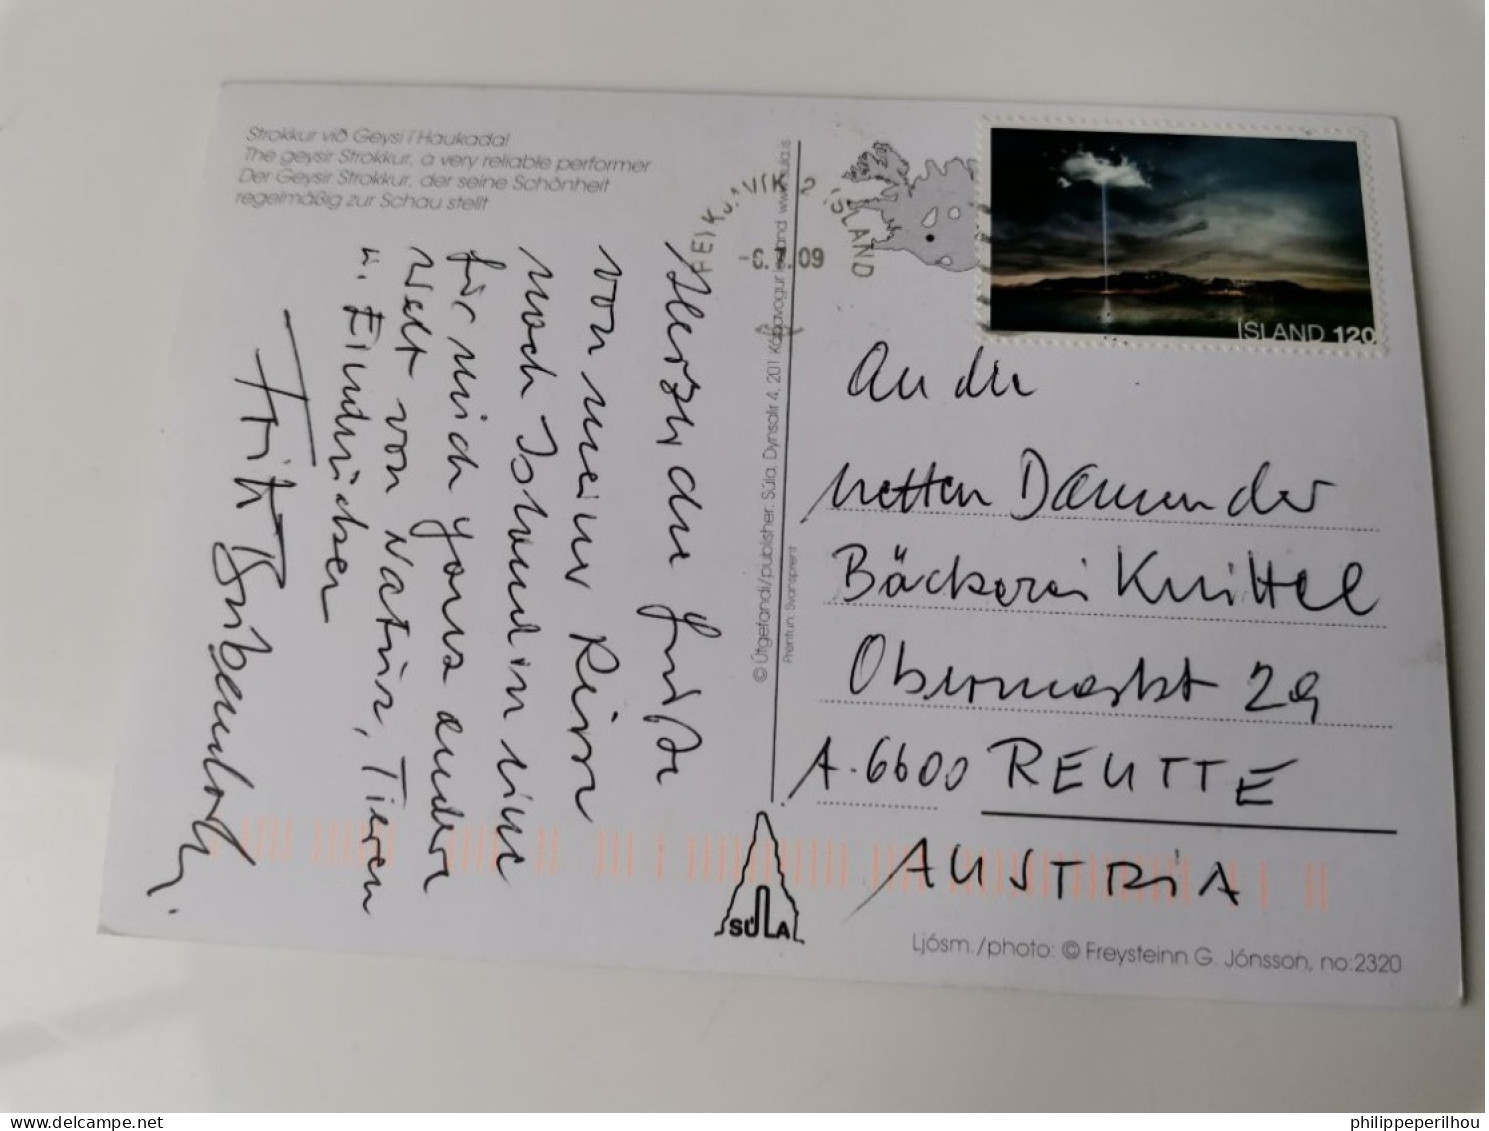 Strokkur við Geysi í Haukadal
The geysir Strokkur, a very reliable performer
Der Geysir Strokkur, der seine Schönheit
regelmäßig zur Schau stellt
Herzliche Grüße
von meiner Reise
nach Island in eine
für mich ganz andere
Welt von Natur, Tieren
u. Eindrücken
Fritz
© Útgefandi/publisher: Súla, Dynsalir 4, 201 Kópavogur Iceland www.sula.is
Prentun: Svansprent
REYKJAVÍK 2 ISLAND
-6.7.09
ÍSLAND 120
An die
netten Damen der
Bäckerei Knittel
Obermarkt 29
A-6600 REUTTE
AUSTRIA
SÚLA
Ljósm./photo: © Freysteinn G. Jónsson, no:2320
delcampe.net
philippeperilhou